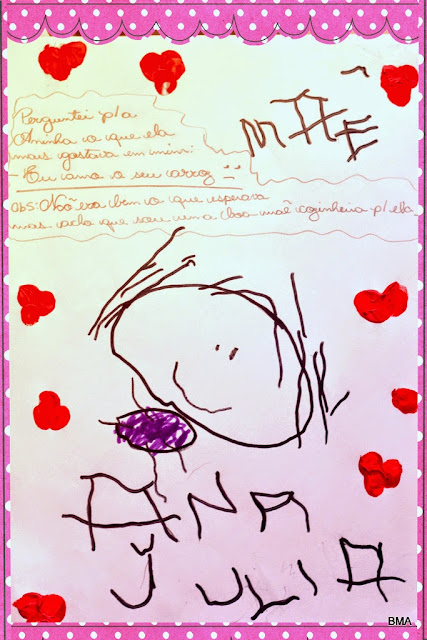 Perguntei p/a
Aninha o que ela
mais gostava em mim:
- Eu amo o seu arroz
MÃE
Obs: Não era bem o que esperava
mas acho que sou uma boa mãe cozinheira p/ ela
ANA
JULIA
BMA